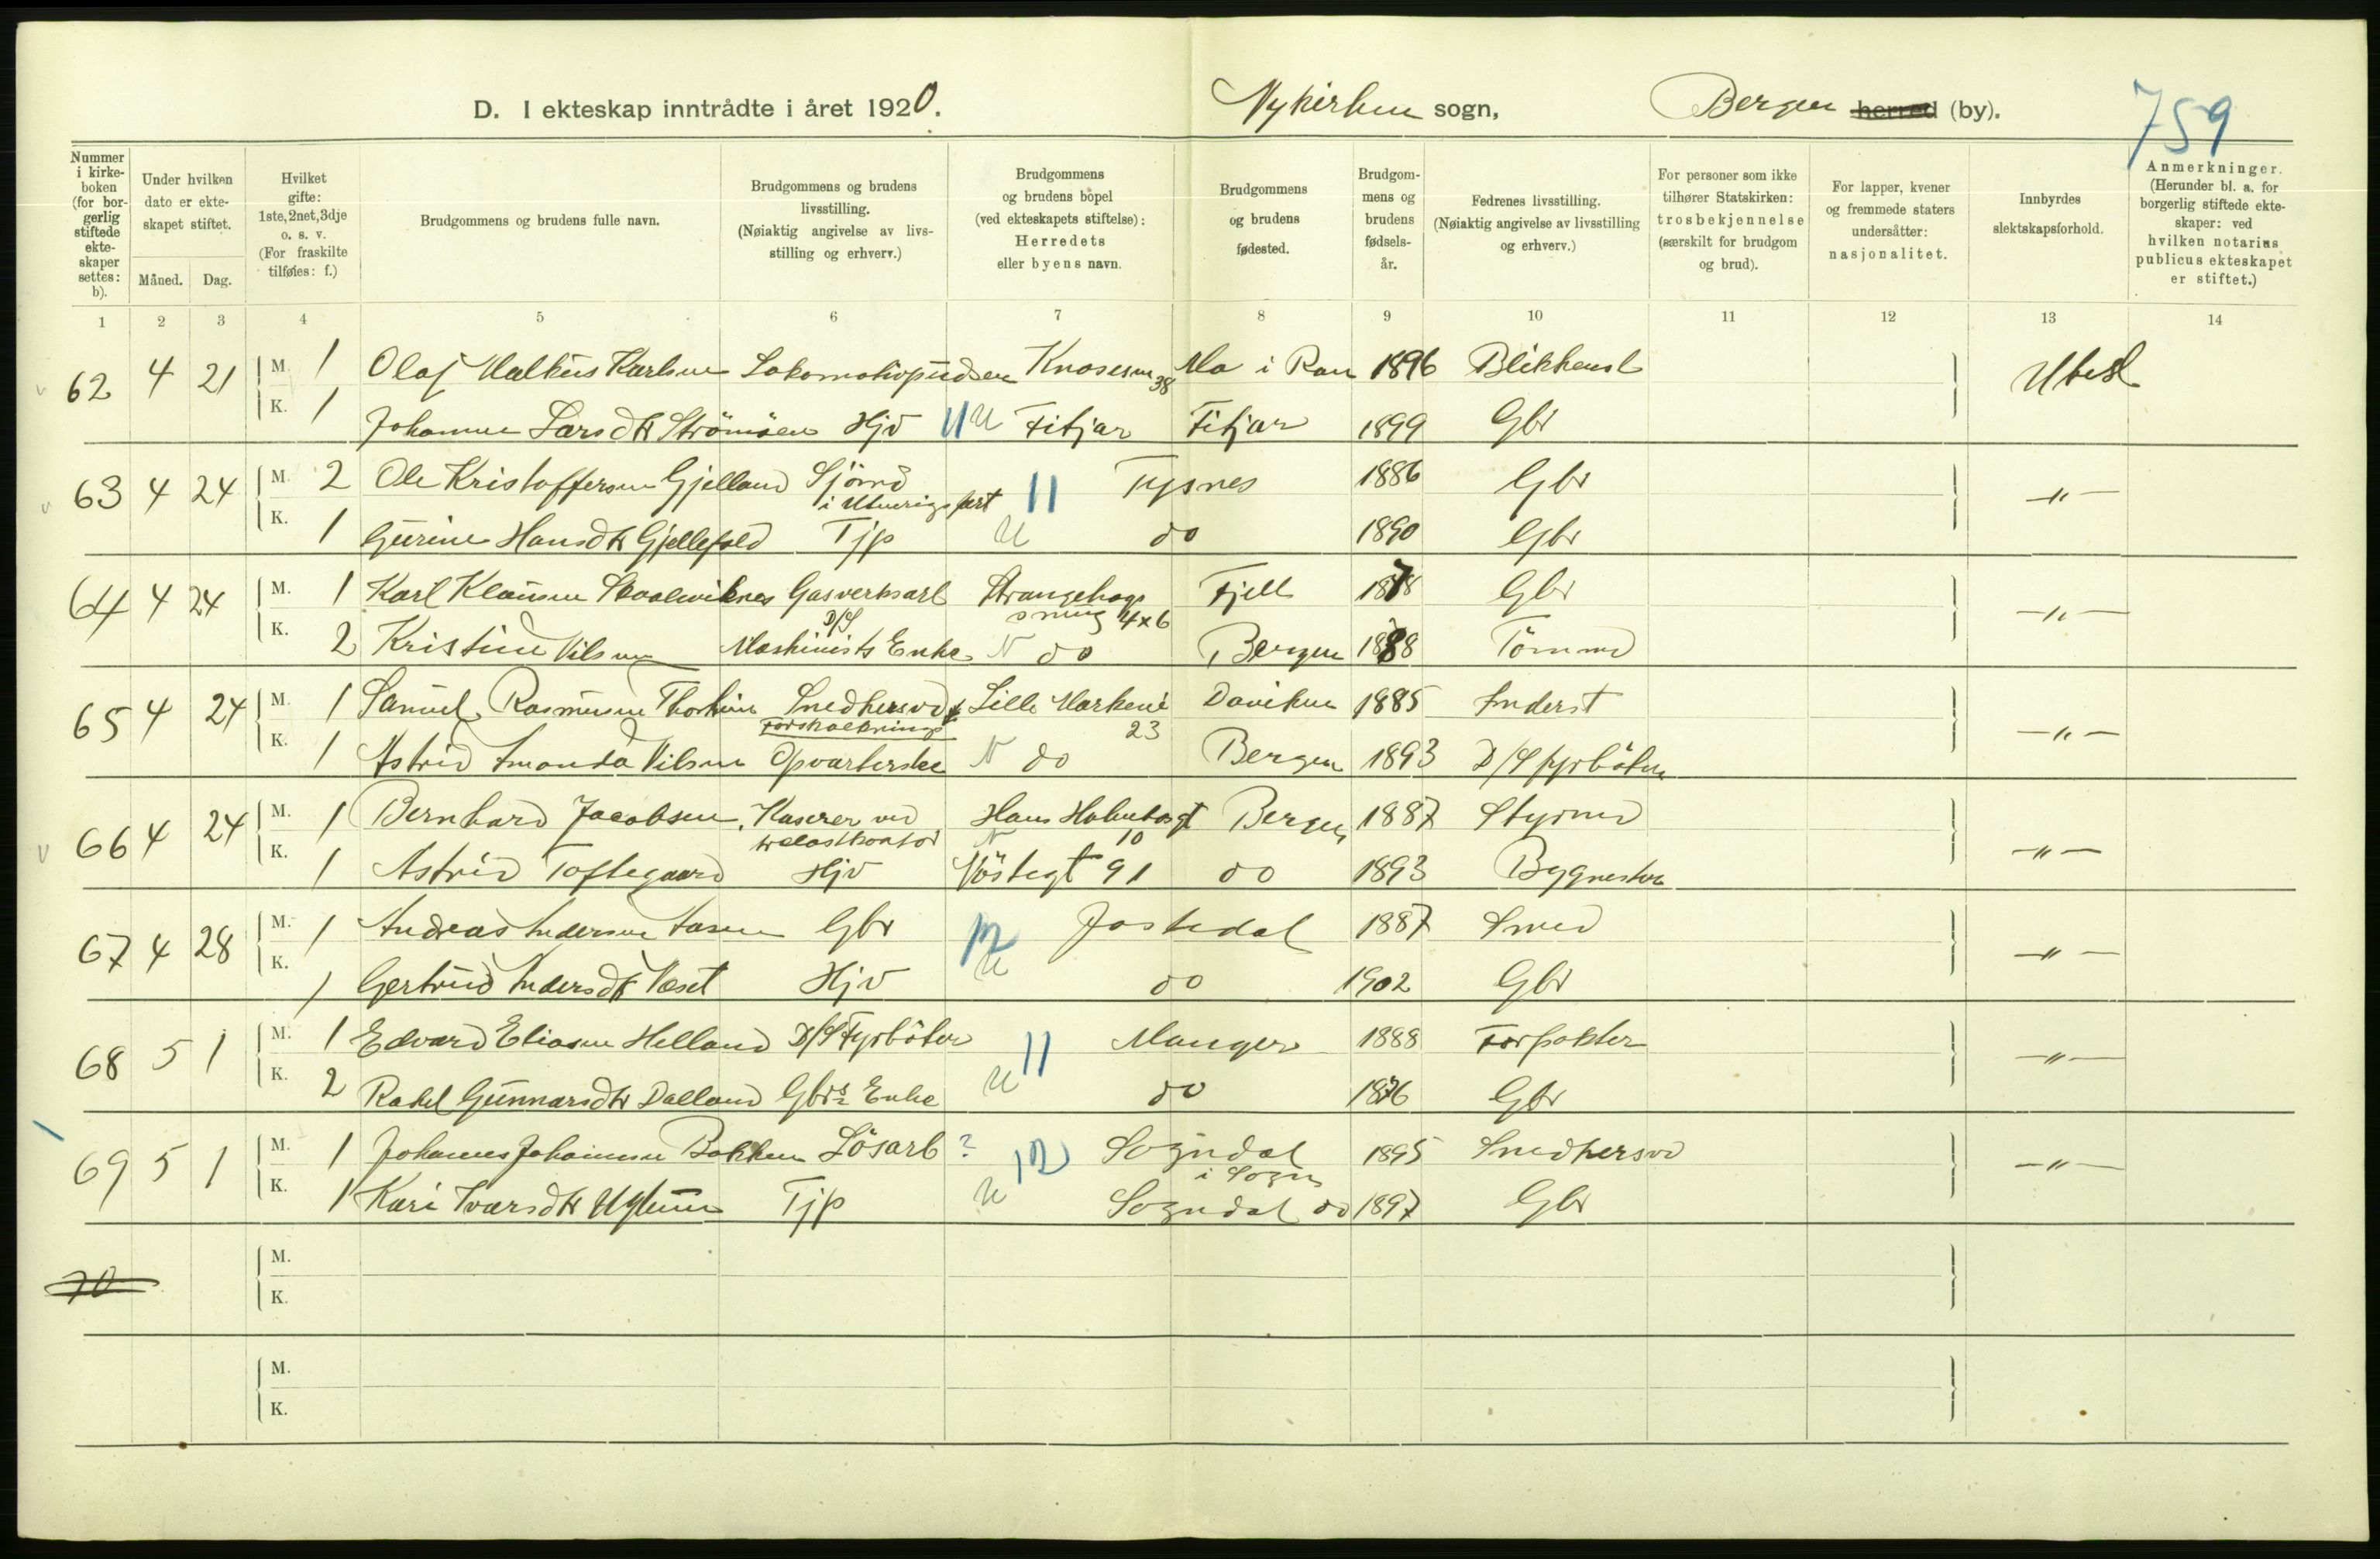 759
D. I ekteskap inntrådte i året 1920. Nykirken sogn, Bergen herred (by).
Nummer i kirkeboken (for borgerlig stiftede ekteskaper settes: b).
Under hvilken dato er ekteskapet stiftet.
Måned. Dag.
Hvilket gifte: 1ste, 2net, 3dje o. s. v. (For fraskilte tilføies: f.)
Brudgommens og brudens fulle navn.
Brudgommens og brudens livsstilling. (Nøiaktig angivelse av livsstilling og erhverv.)
Brudgommens og brudens bopel (ved ekteskapets stiftelse): Herredets eller byens navn.
Brudgommens og brudens fødested.
Brudgommens og brudens fødselsår.
Fedrenes livsstilling. (Nøiaktig angivelse av livsstilling og erhverv.)
For personer som ikke tilhører Statskirken: trosbekjennelse (særskilt for brudgom og brud).
For lapper, kvener og fremmede staters undersåtter: nasjonalitet.
Innbyrdes slektskapsforhold.
Anmerkninger. (Herunder bl. a. for borgerlig stiftede ekteskaper: ved hvilken notarius publicus ekteskapet er stiftet.)
1 2 3 4 5 6 7 8 9 10 11 12 13 14
62 4 21 M. 1 Olaf Karlsen Knøsesm 38 Mo i Ran 1896 Ubesl
K. 1 Johanne Larsdtr Strömöen Hjv 11 U Fitjar Fitjar 1899 Gbr
63 4 24 M. 2 Ole Kristoffersen Gjelland Sjömd i Utenrigsfart 11 Tysnes 1886 Gbr -"-
K. 1 Gurine Hansdtr Gjellefald Tjp U do 1890 Gbr
64 4 24 M. 1 Karl Klausen Gasverksarb Strangehagen 4x6 Fjell 1878 Gbr -"-
K. 2 Kristine Nilsen D/S Maskinists Enke N do Bergen 1888 Tömmd
65 4 24 M. 1 Samuel Rasmusen Snedkersvd Lille Markevei 23 Daviken 1885 Inderst -"-
Forskalknings
K. 1 Astrid Amanda Nilsen Opvarterske N do Bergen 1893 D/S fyrböter
66 4 24 M. 1 Bernhard Jacobsen Kaserer ved Hans Holmboesgt 10 Bergen 1887 Styrmd -"-
K. 1 Astrid Toftegaard Hjv N Nöstegt 91 do 1893 Bygnester
67 4 28 M. 1 Andreas Andersen Gbr 12 Jostedal 1887 Smed -"-
K. 1 Gertrud Andersdtr Hjv U do 1902 Gbr
68 5 1 M. 1 Edvard Eliasen Helland D/S Fyrböter 11 Manger 1888 Forpakter -"-
K. 2 Rakel Gunnarsdtr Dalland Gbrs Enke U do 1876 Gbr
69 5 1 M. 1 Johannes Johannesen Bakken Lösarb ? 12 Sogndal i Sogn 1895 Snedkersvd -"-
K. 1 Kari Ivarsdtr Uglum Tjp U Sogndal do 1897 Gbr
70 M.
K.
M.
K.